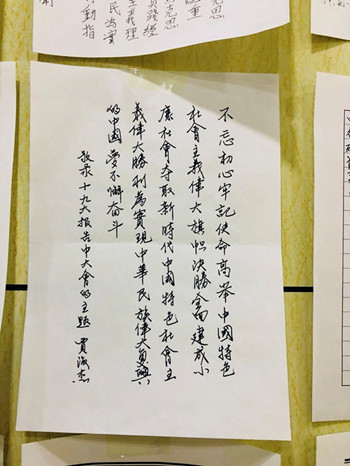 克思
主義理
民為實
動指
不忘初心牢記使命高举中國特色
社會主義偉大旗幟決勝全面建成小
康社會夺取新時代中國特色社會主
義偉大勝利為實現中華民族偉大复興
的中國夢不懈奋斗
敬录十九大报告中大會的主題 賈海杰